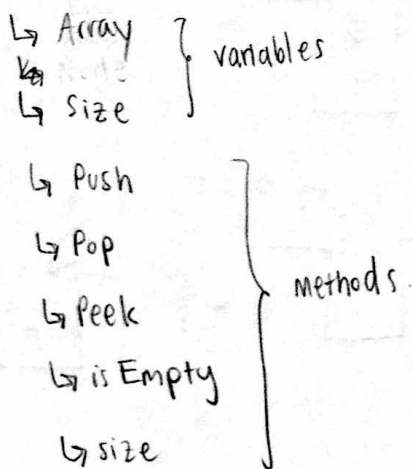 ↳ Array
↳ size
variables
↳ Push
↳ Pop
↳ Peek
↳ is Empty
↳ size
methods.